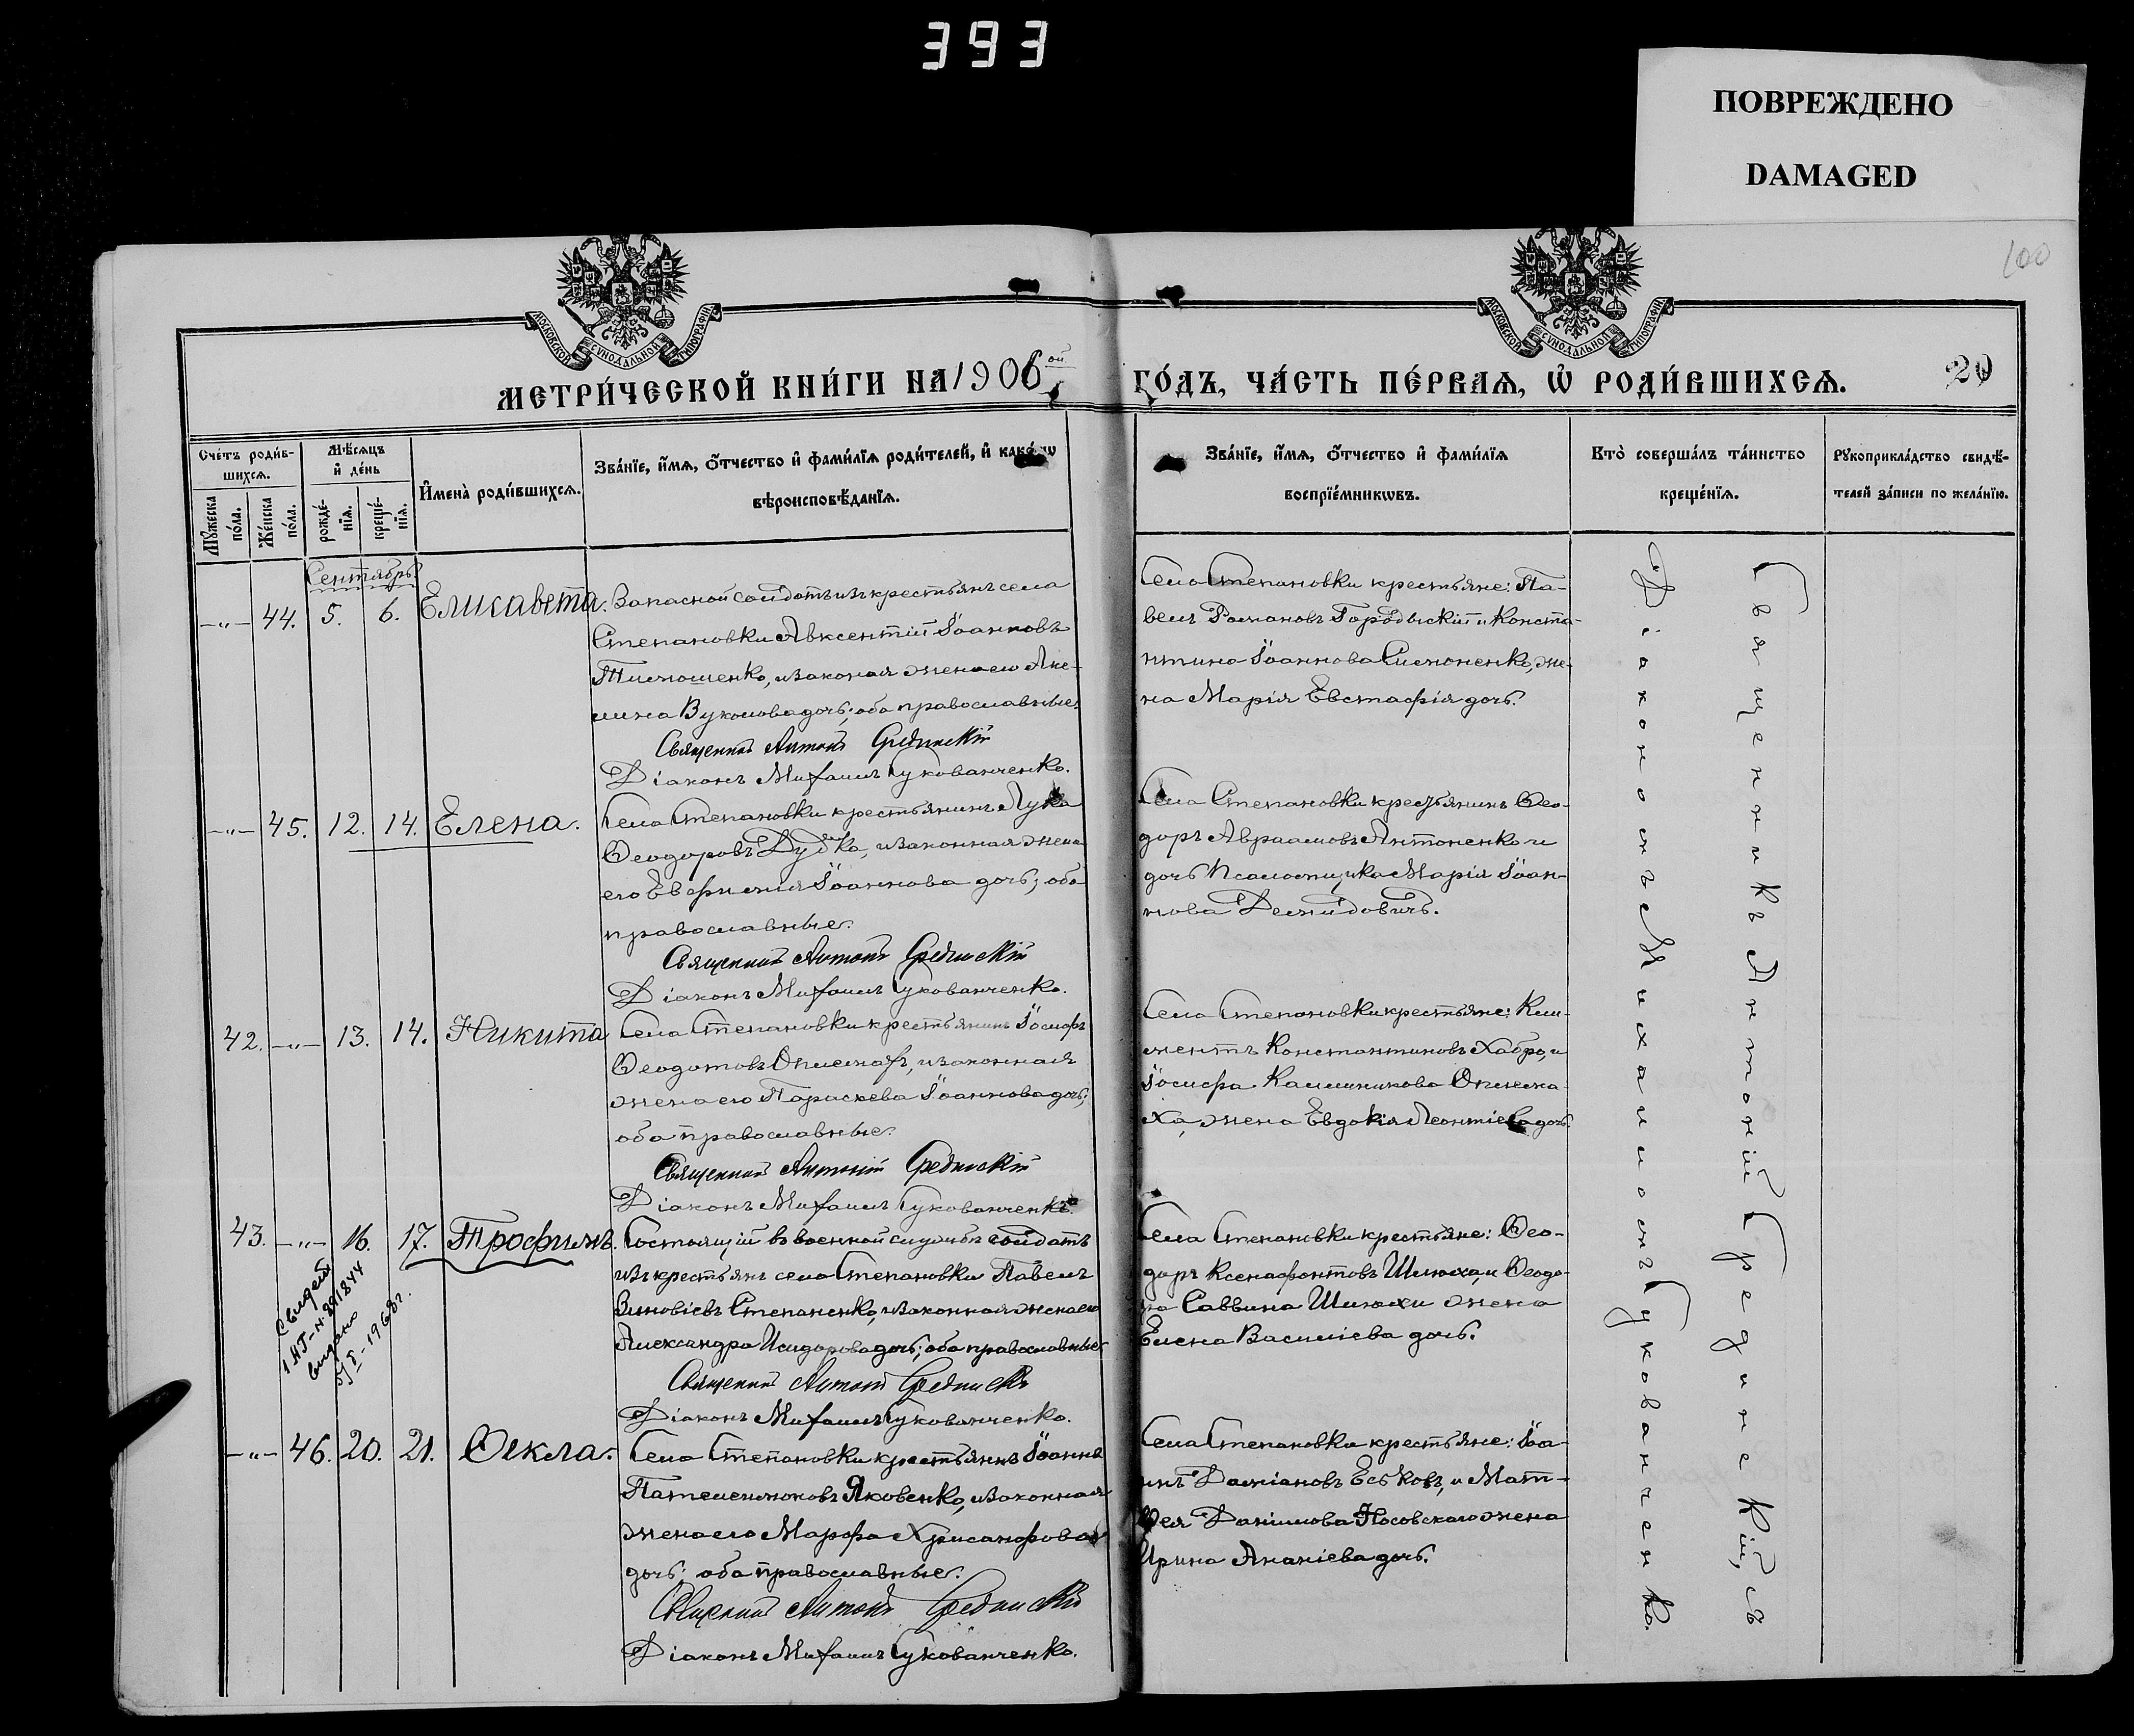 393
ПОВРЕЖДЕНО
DAMAGED
100
МОСКОВСКОЙ СУНОДАЛЬНОЙ ТИПОГРАФІИ
МОСКОВСКОЙ СУНОДАЛЬНОЙ ТИПОГРАФІИ
МЕТРИ́ЧЕСКОЙ КНИ́ГИ НА 1906ой
ГО́ДЪ, ЧА́СТЬ ПЕ́РВАЯ, Ѡ҆ РОДИ́ВШИХСЯ.
20
Сче́тъ роди́в-
шихся.
Мѣ́сяцъ
и҆ де́нь
Мꙋ́жеска по́ла.
Же́нска по́ла.
рожде́-
нїя.
креще́-
нїя.
И҆мена̀ роди́вшихся.
Зва́нїе, и҆́мя, ѻ҆́тчество и҆ фами́лїя роди́телей, и҆ како́гѡ
вѣроисповѣ́данїя.
Зва́нїе, и҆́мя, ѻ҆́тчество и҆ фами́лїя
воспрїе́мникωвъ.
Кто̀ соверша́лъ та́инство
креще́нїя.
Рꙋкоприкла́дство свидѣ́-
телей за́писи по жела́нїю.
Сентябрь.
—„— 44. 5. 6. Елисавета.
Запасной солдатъ изъ крестьянъ села
Степановки Авксентій Іоанновъ
Тимошенко, и законная жена его Аке-
лина Вуколова дочь; оба православные.
Священникъ Антоній Срединскій
Діаконъ Михаилъ Сукованченко.
Села Степановки крестьяне: Па-
велъ Романовъ Городыскій и Конста-
нтина Іоаннова Симоненко, же-
на Марія Евстафія дочь.
—„— 45. 12. 14. Елена.
Села Степановки крестьянинъ Лука
Ѳеодоровъ Дудко, и законная жена
его Евфимія Іоаннова дочь; оба
православные.
Священникъ Антоній Срединскій
Діаконъ Михаилъ Сукованченко.
Села Степановки крестьянинъ Ѳео-
доръ Авраамовъ Антоненко и
дочь Псаломщика Марія Іоан-
нова Демидовичъ.
42. —„— 13. 14. Никита
Села Степановки крестьянинъ Іосифъ
Ѳеодотовъ Опимахъ, и законная
жена его Параскева Іоаннова дочь;
оба православные.
Священникъ Антоній Срединскій
Діаконъ Михаилъ Сукованченко.
Села Степановки крестьяне: Кли-
ментъ Константиновъ Хабро, и
Іосифа Каллиникова Опима-
ха, жена Евдокія Леонтіева дочь.
43. —„— 16. 17. Трофимъ.
Состоящій въ военной службѣ солдатъ
изъ крестьянъ села Степановки Павелъ
Зиновіевъ Степаненко, и законная жена его
Александра Исидорова дочь; оба православные.
Священникъ Антоній Срединскій
Діаконъ Михаилъ Сукованченко.
Села Степановки крестьяне: Ѳео-
доръ Ксенофонтовъ Шилюха, и Ѳеодо-
ра Саввина Шилюхи жена
Елена Василіева дочь.
выдано
1968г.
—„— 46. 20. 21. Ѳекла.
Села Степановки крестьянинъ Іоаннъ
Пателеимоновъ Яковенко, и законная
жена его Марфа Хрисанфова
дочь; оба православные.
Священникъ Антоній Срединскій
Діаконъ Михаилъ Сукованченко.
Села Степановки крестьяне: Іоа-
ннъ Даміановъ Еськовъ, и Мат-
ѳея Даніилова Носовскаго жена
Ирина Ананіева дочь.
Священникъ Антоній Срединскій, съ
Діакономъ Михаиломъ Сукованченко.